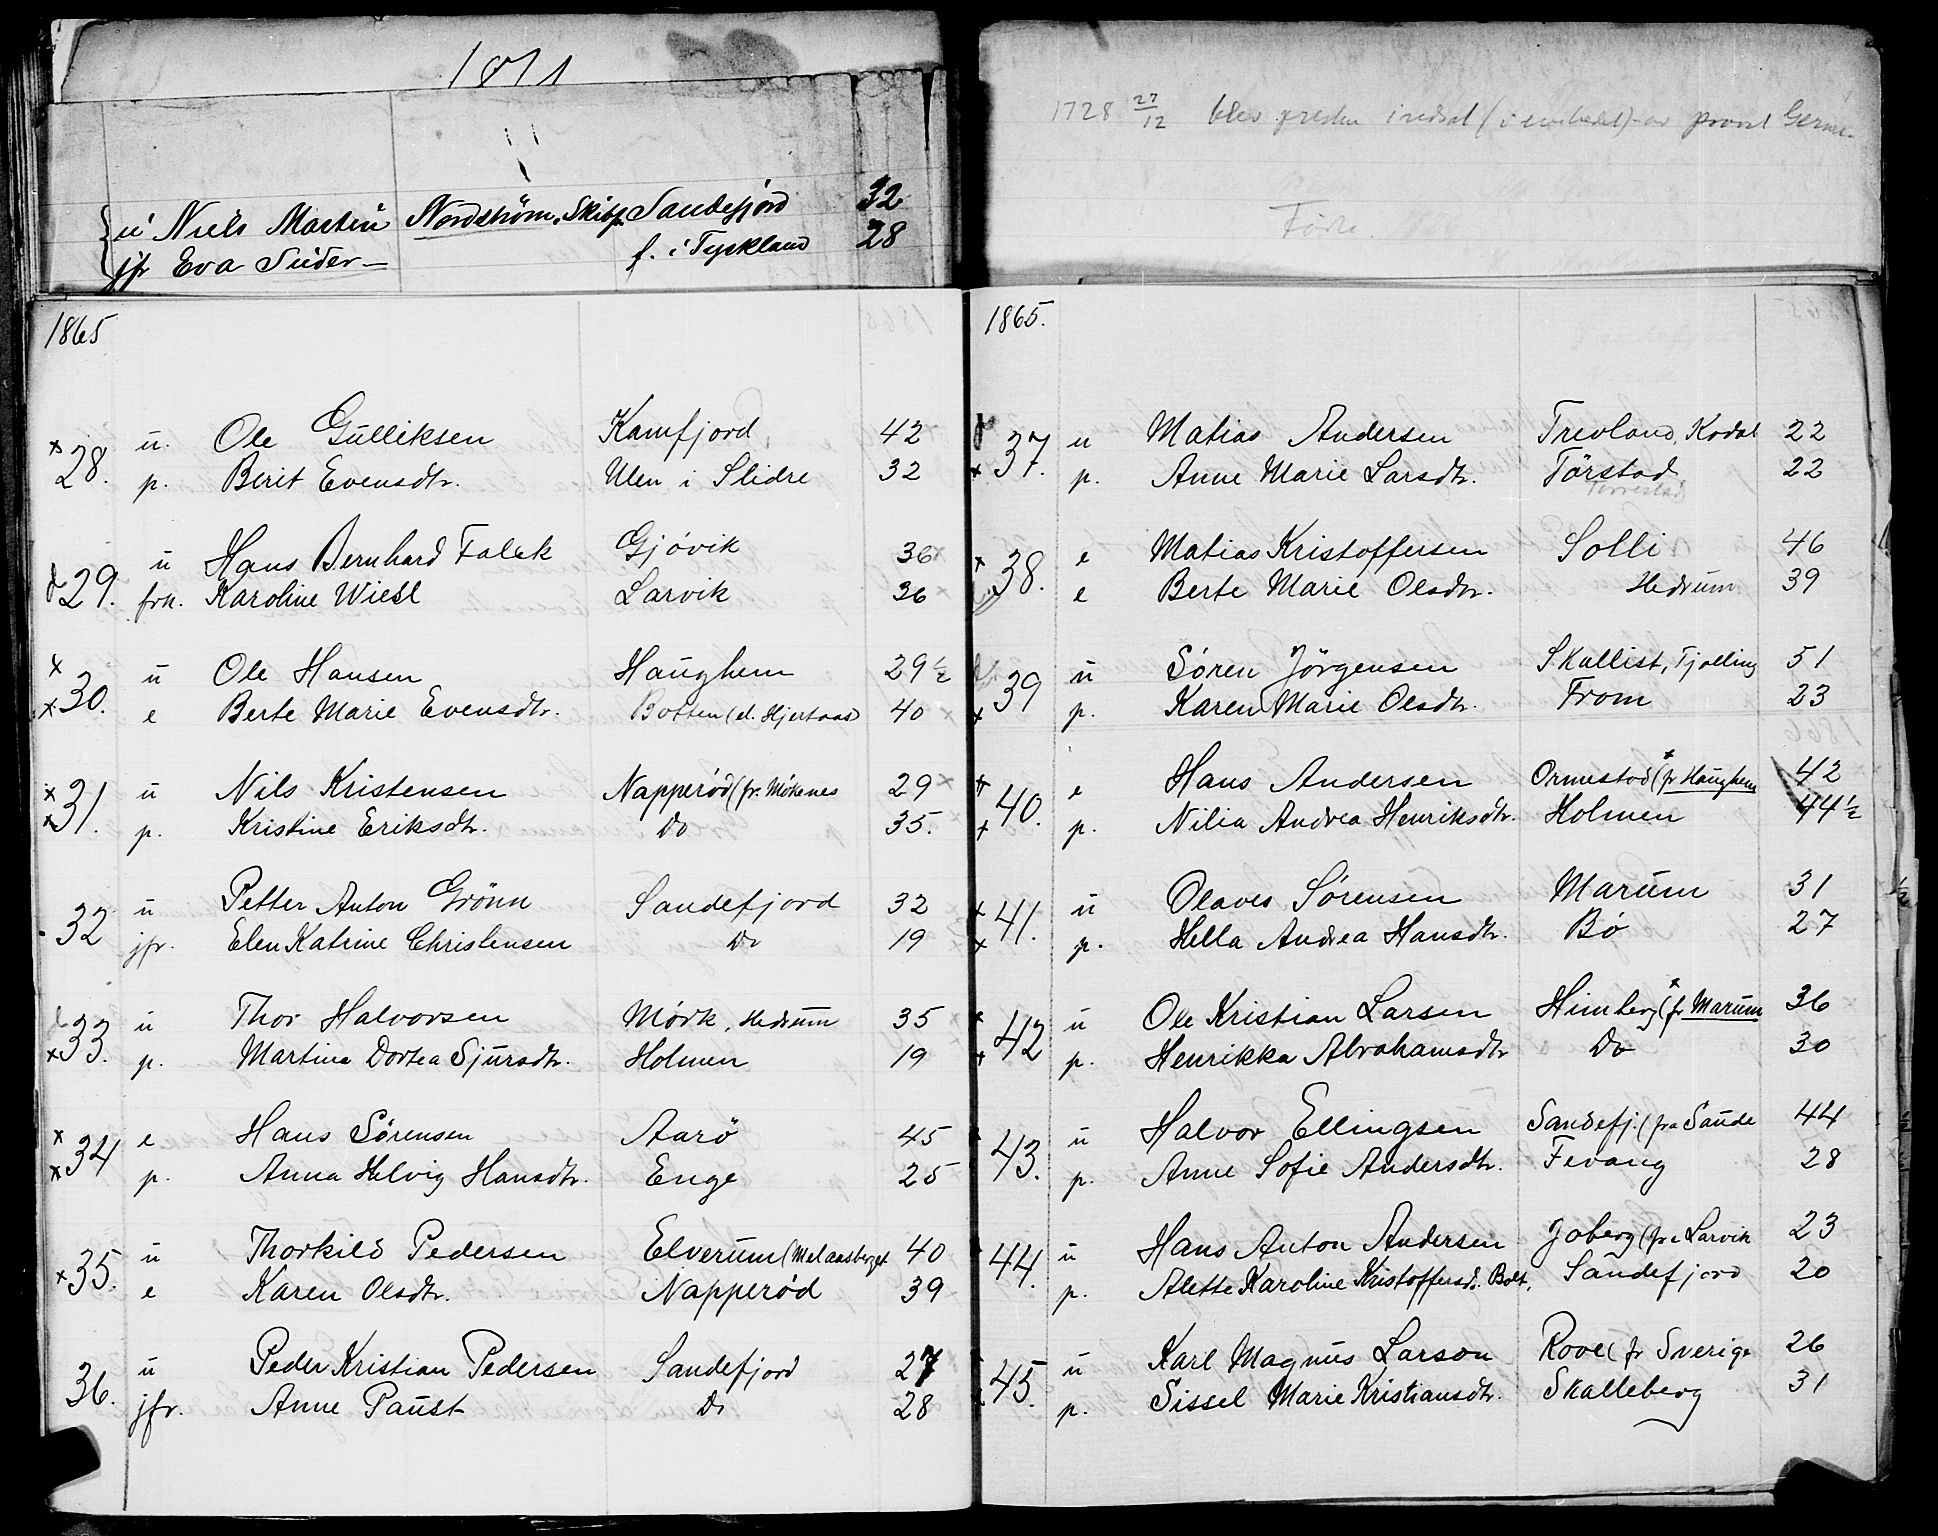 1871
u Niels Martin Nordstrøm, Skibsf. Sandefjord 32
jfr Eva Suder f. i Tyskland 28
1865
28. u. Ole Gulliksen Kamfjord 42
p. Berit Evensdtr. Ulen i Slidre 32
29. u Hans Bernhard Falck Gjøvik 36
frk. Karoline Wiesl Larvik 36
30. u Ole Hansen Haughem 29 ½
e Berte Marie Evensdtr. Botten (el. Hjertaas) 40
31. u Nils Kristensen Napperød (fr. Møkenes 29
p. Kristine Eriksdtr. Do 35.
32 u Petter Anton Grönn Sandefjord 32
jfr. Elen Katrine Christensen Do 19
33. u Thor Halvorsen Mørk, Hedrum 35
p. Martine Dortea Sjursdtr. Holmen 19
34 e Hans Sørensen Aarö 45
p. Anna Helvig Hansdtr. Enge 25
35. u Thorkild Pedersen Elverum (Melaasberget 40
e Karen Olsdtr. Napperød 39
36. u Peder Kristian Pedersen Sandefjord 27
jfr. Anne Paust Do 28
1728 27/12 blev presten indsat ( ) av provst
Fødte.
1865.
37. u Matias Andersen Trevland, Kodal 22
p. Anne Marie Larsdtr. Törstad 22
Torrestad
38. e Matias Kristoffersen Solli 46
e Berte Marie Olsdtr. Hedrum 39
39 u Sören Jörgensen Skallist, Tjölling 51
p. Karen Marie Olsdtr. From 23
40. e Hans Andersen Ormestad (fr Haughem 42
p. Nilia Andrea Henriksdtr. Holmen 44 ½
41. u Olaves Sørensen Marum 31
p. Hella Andrea Hansdtr. Bø 27
42 u Ole Kristian Larsen Himberg (fr Marum 36
p. Henrikka Abrahamsdtr Do 30
43. u Halvor Ellingsen Sandefj. (fra Saude 44
p. Anne Sofie Andersdtr. Fevang 28
44. u Hans Anton Andersen Joberg (fra Larvik 23
p. Alette Karoline Kristoffersd. Bolt. Sandefjord 20
45. u Karl Magnus Larson Rove (fr Sverige 26
p. Sissel Marie Kristiansdtr. Skalleberg 31